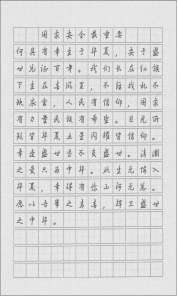 国家安全最重要
何其有幸生于华夏，安于盛
世见证百年。我们长在红旗
下生在春风里，不经战乱不
缺衣食，人民有信仰，国家
有力量民族有希望。目光所
致皆华夏五星闪耀皆信仰。
幸逢盛世当不负盛世。清澜
之最只而中华。此生无悔入
华夏，幸得有你山河无恙。
愿以吾辈之青春，捍卫盛世
之中华。